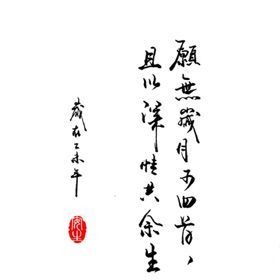 願無歲月可回首，
且以深情共余生
歲在乙未年